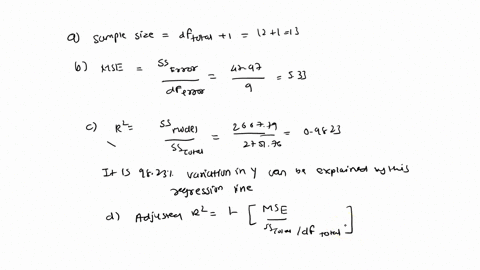 a) Sample size = df total + 1 = 12 + 1 = 13
b) MSE = SS Error / df error = 47.97 / 9 = 5.33
c) R² = SS model / SS Total = 2667.79 / 2751.76 = 0.9823
It is 98.23% variation in y can be explained by this
regression line
d) Adjusted R² = 1- [ MSE / SS Total / df Total ]